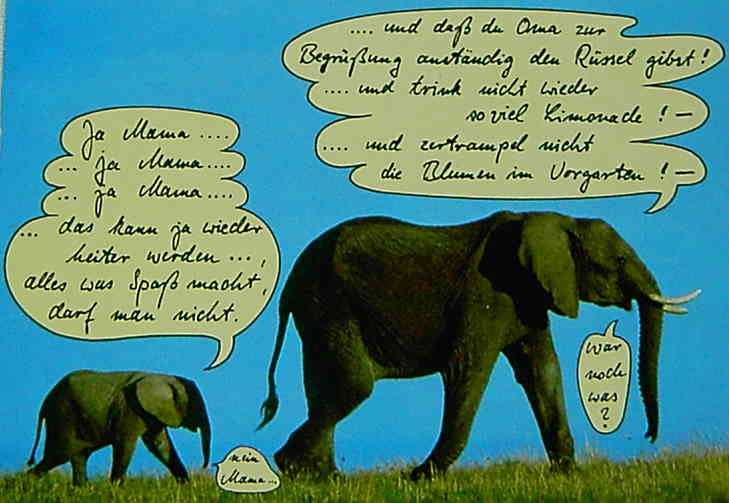 .... und daß du Oma zur
Begrüßung anständig den Rüssel gibst !
.... und trink nicht wieder
so viel Limonade ! —
.... und zertrampel nicht
die Blumen im Vorgarten ! —
Ja Mama ....
... ja Mama....
... ja Mama....
... das kann ja wieder
heiter werden ...,
alles was Spaß macht,
darf man nicht.
war
noch
was
?
nein
Mama...